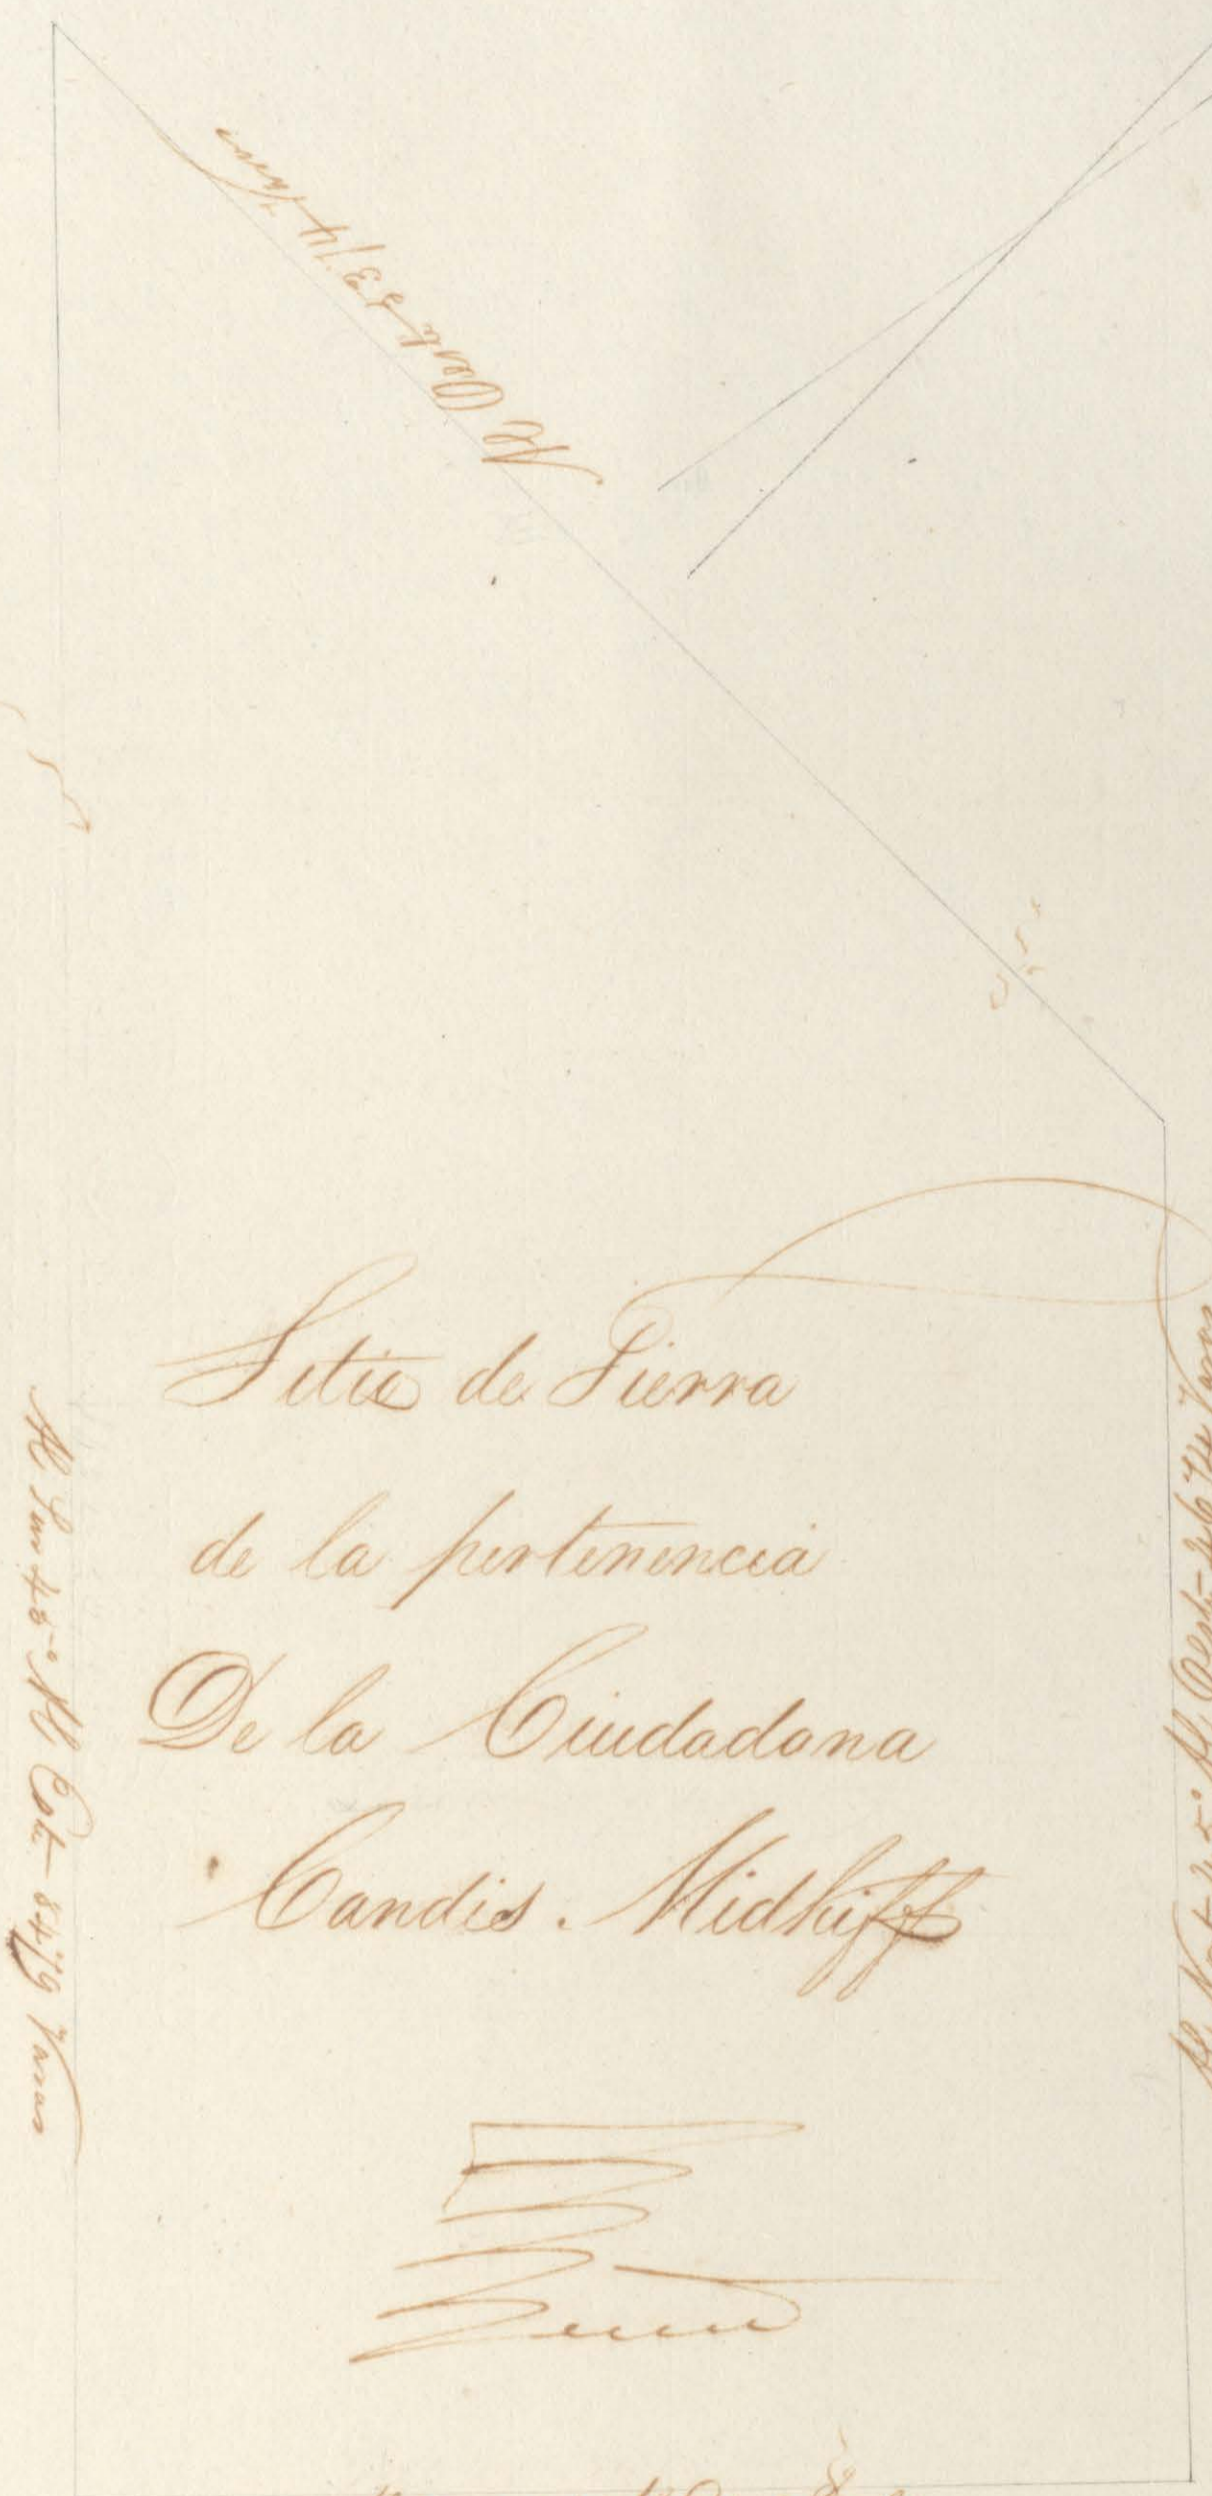 Al Oeste
Varas
Sitio de Tierra
de la pertenencia
De la Ciudadana
Candis. Midkiff
Al Sur 45° Al Este - 8479 Varas
Al Nort 45° Al Oest- Varas